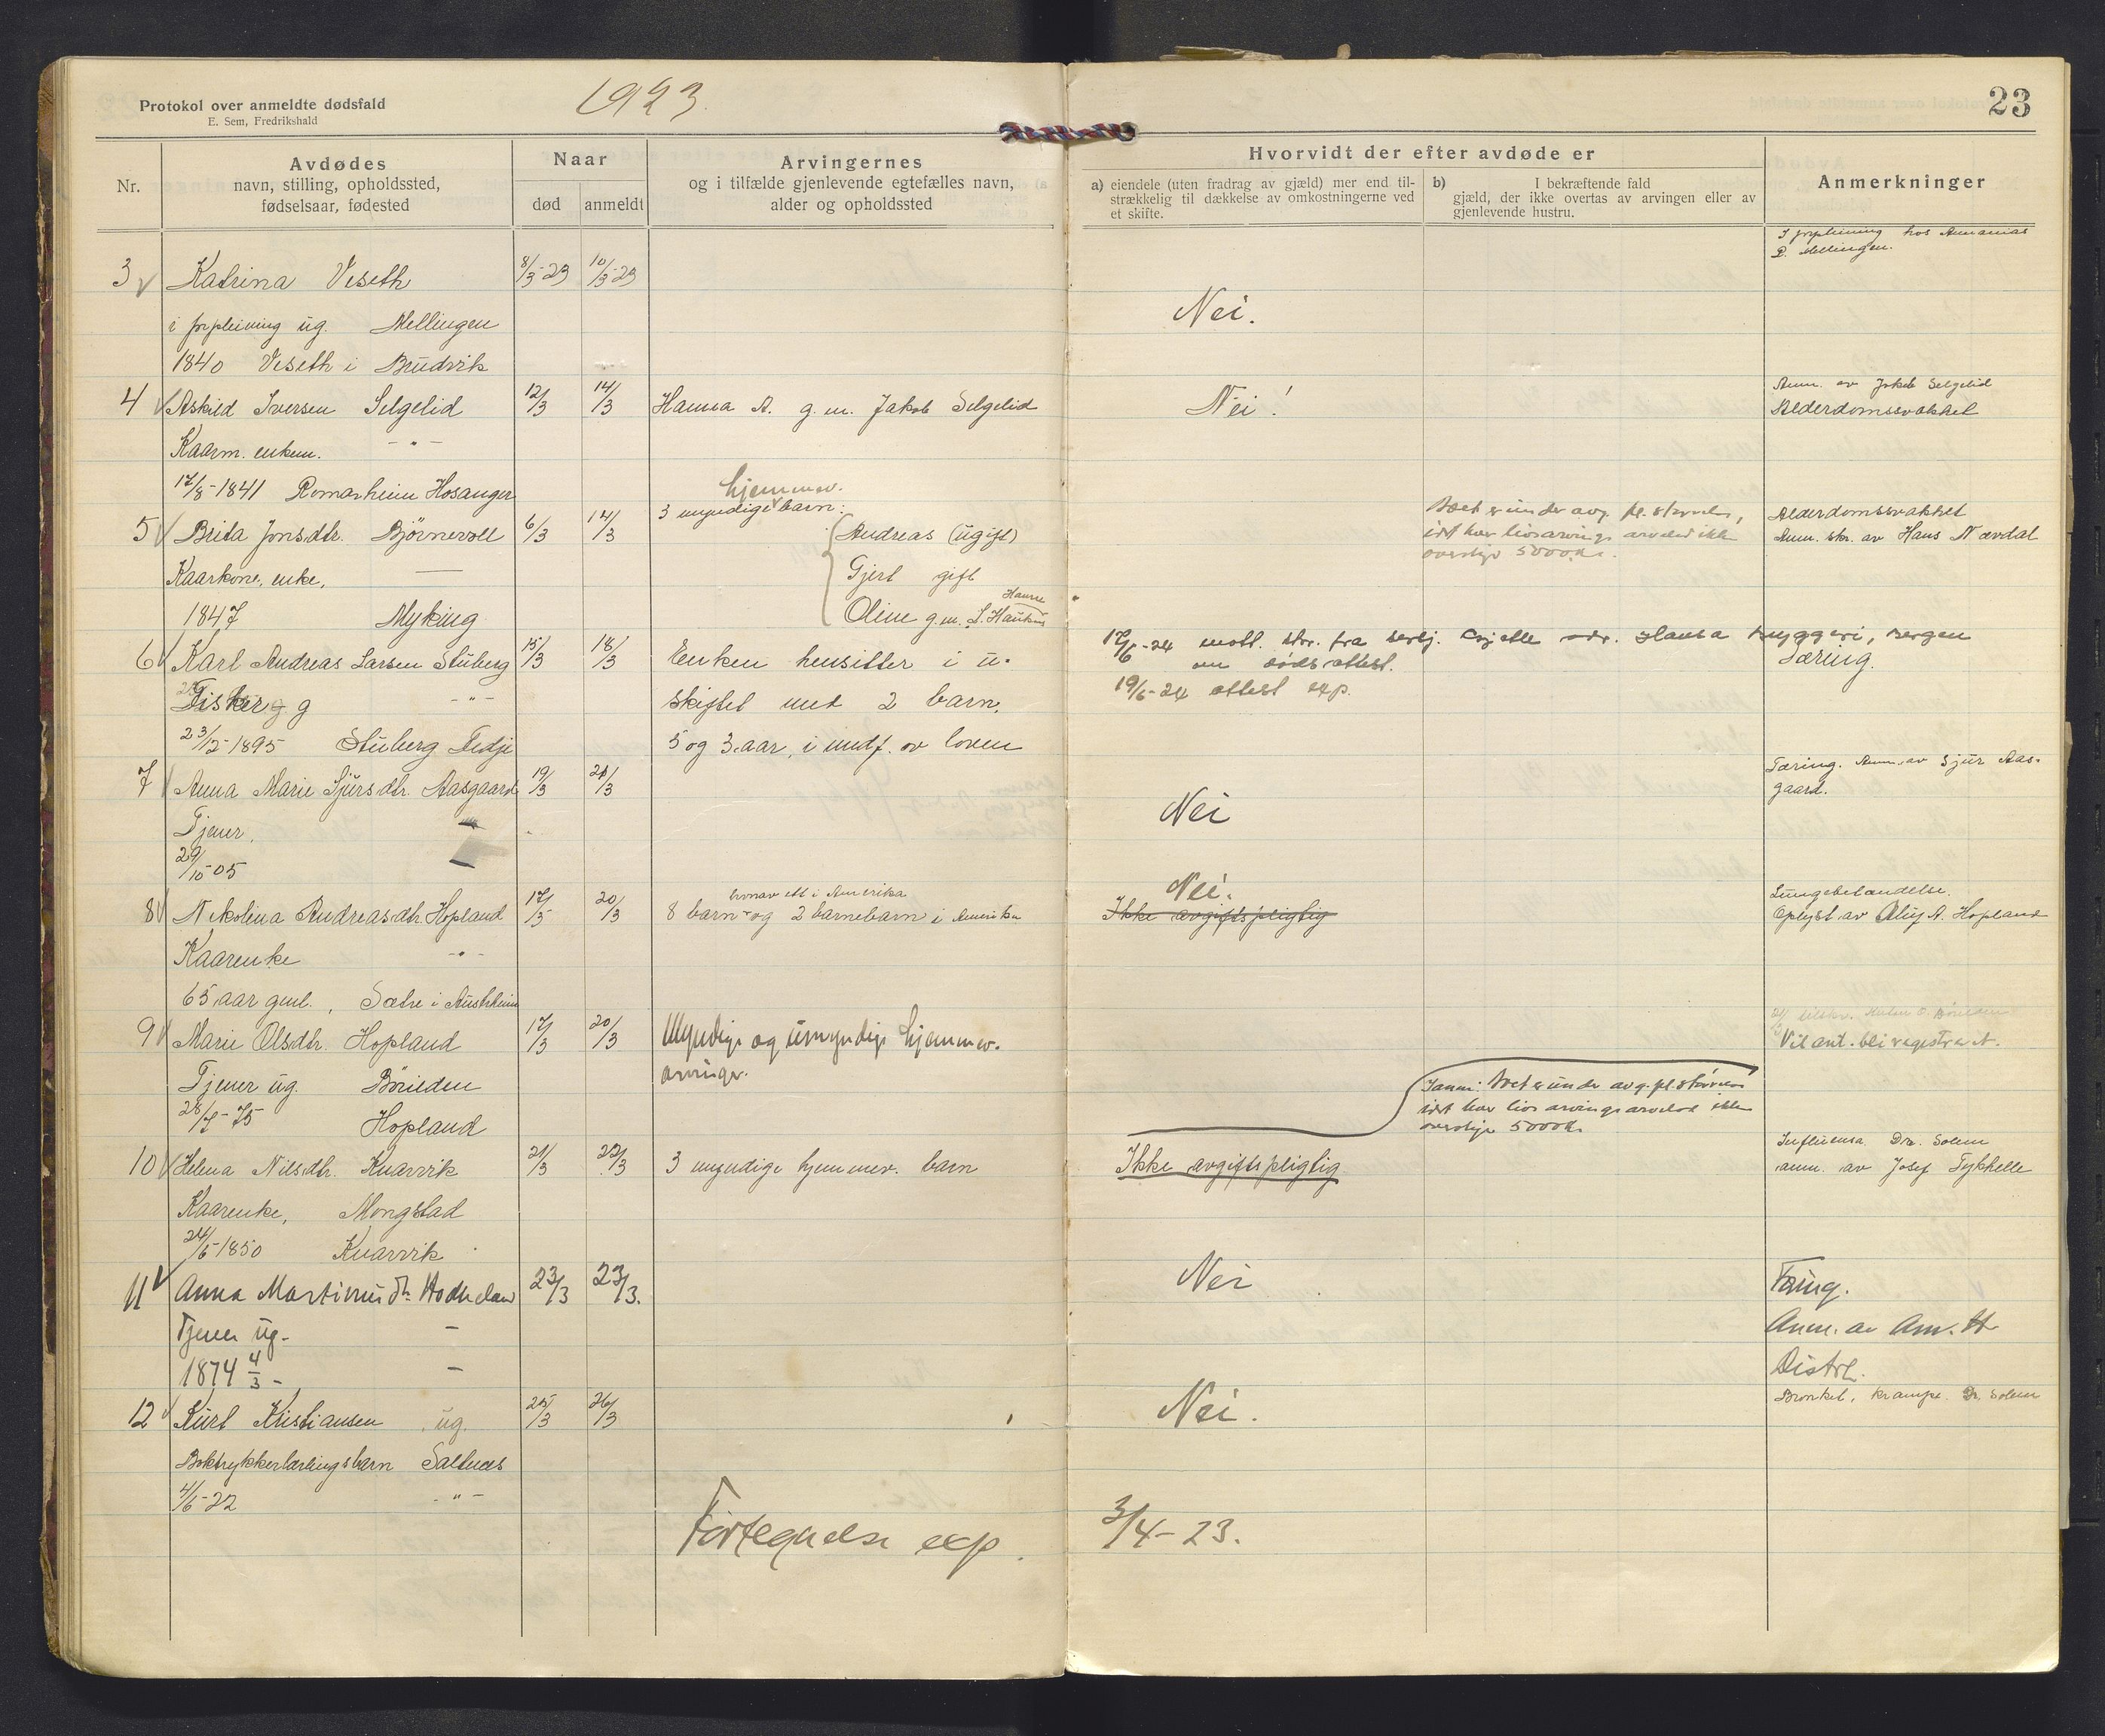 Protokol over anmeldte dødsfald
E. Sem, Fredrikshald
1923.
23
Nr.
Avdødes
navn, stilling, opholdssted,
fødselsaar, fødested
Naar
død
anmeldt
Arvingernes
og i tilfælde gjenlevende egtefælles navn,
alder og opholdssted
Hvorvidt der efter avdøde er
a) eiendele (uten fradrag av gjæld) mer end til-
strækkelig til dækkelse av omkostningerne ved
et skifte.
b) I bekræftende fald
gjæld, der ikke overtas av arvingen eller av
gjenlevende hustru.
Anmerkninger
3 Katrina Veseth 8/3-23 10/3-23
I forpleining hos Annanias
P. Mellingen.
i forpleining ug. Mellingen
Nei.
1840 Veseth i Brudvik
4 Askild Iversen Selgelid 12/3 14/3 Hanna A. g.m. Jakob Selgelid Nei!
Anm. av Jakob Selgelid
Alderdomssvakhet
Kaarm. enkem. -"-
17/8-1841 Romarheim Hosanger
5 Brita Jonsdtr. Bjørnevoll 6/3 14/3
hjemmev.
3 myndige barn:
Andreas (ugift)
Gjert gift
Oline g.m.
Kaarkone, enke,
1847 Myking
Boet er under avg. pl. størrelse,
idet hver livsarvings arvelod ikke
overstige 5000 kr.
Alderdomssvakhet
Anm. skr. av Hans Nævdal
6 Karl Andreas Larsen Stuberg 15/3 18/3 Enken hensitter i u-
Fisker g -"-
skiftet med 2 barn,
23/12-1895 Stuberg Fedje
5 og 3 aar, i medf. av loven
17/6-24 mott. skr. fra Hansa Bryggeri, Bergen
om dødsattest.
19/6-24 attest exp.
Tæring.
7 Anna Marie Sjursdtr. Aasgaard 19/3 21/3 Nei
Tæring. Anm. av Sjur Aas-
gaard.
Tjener,
29/10-05
8 Nikolina Andreasdtr. Hopland 17/3 20/3
hvorav ett i Amerika
8 barn og 2 barnebarn i Amerika
Nei.
Ikke avgiftspligtig
Lungebetændelse.
Oplyst av Oluf A. Hopland
Kaarenke -"-
65 aar gml., Sætre i Austrheim
9 Marie Olsdtr. Hopland 17/3 20/3 Myndige og umyndige hjemmev.
arvinger.
Vil ant. bli registrert.
Tjener ug. Børilden
28/7-75 Hopland
Boet er under avg. pl. størrelse
idet hver livsarvings arvelod ikke
overstige 5000 kr.
10 Helena Nilsdtr. Knarvik 21/3 22/3 3 myndige hjemmev. barn Ikke avgiftspligtig
Influensa. Dr. Solem
anm. av Josef Tykkelle
Kaarenke, Mongstad
24/6-1850 Knarvik
11 Anna Martinusdtr. Hodneland 23/3 23/3. Nei
Tæring.
Tjener ug. -
Anm. av Am. H.
1874 4/3 - -
Distrl.
12 Kurt Kristiansen ug. 25/3 26/3 Nei.
Bronkit, krampe. Dr. Solem
Boktrykkerlærlingsbarn Saltnes
4/6-22 -"-
Fortegnelse exp. 3/4-23.